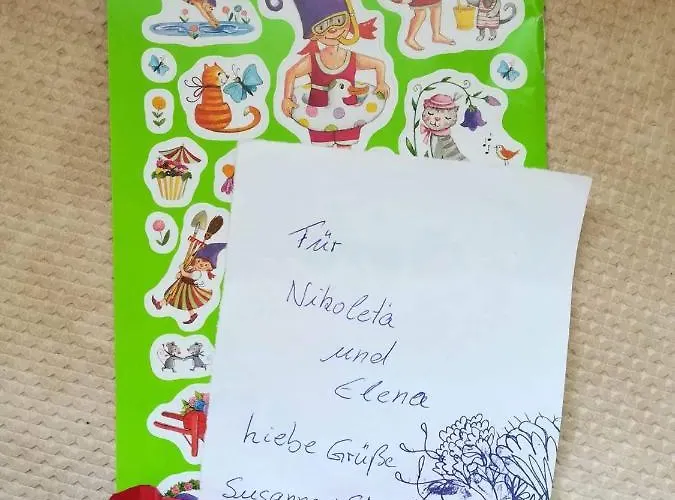 Für
Nikoleta
und
Elena
liebe Grüße
Susanne